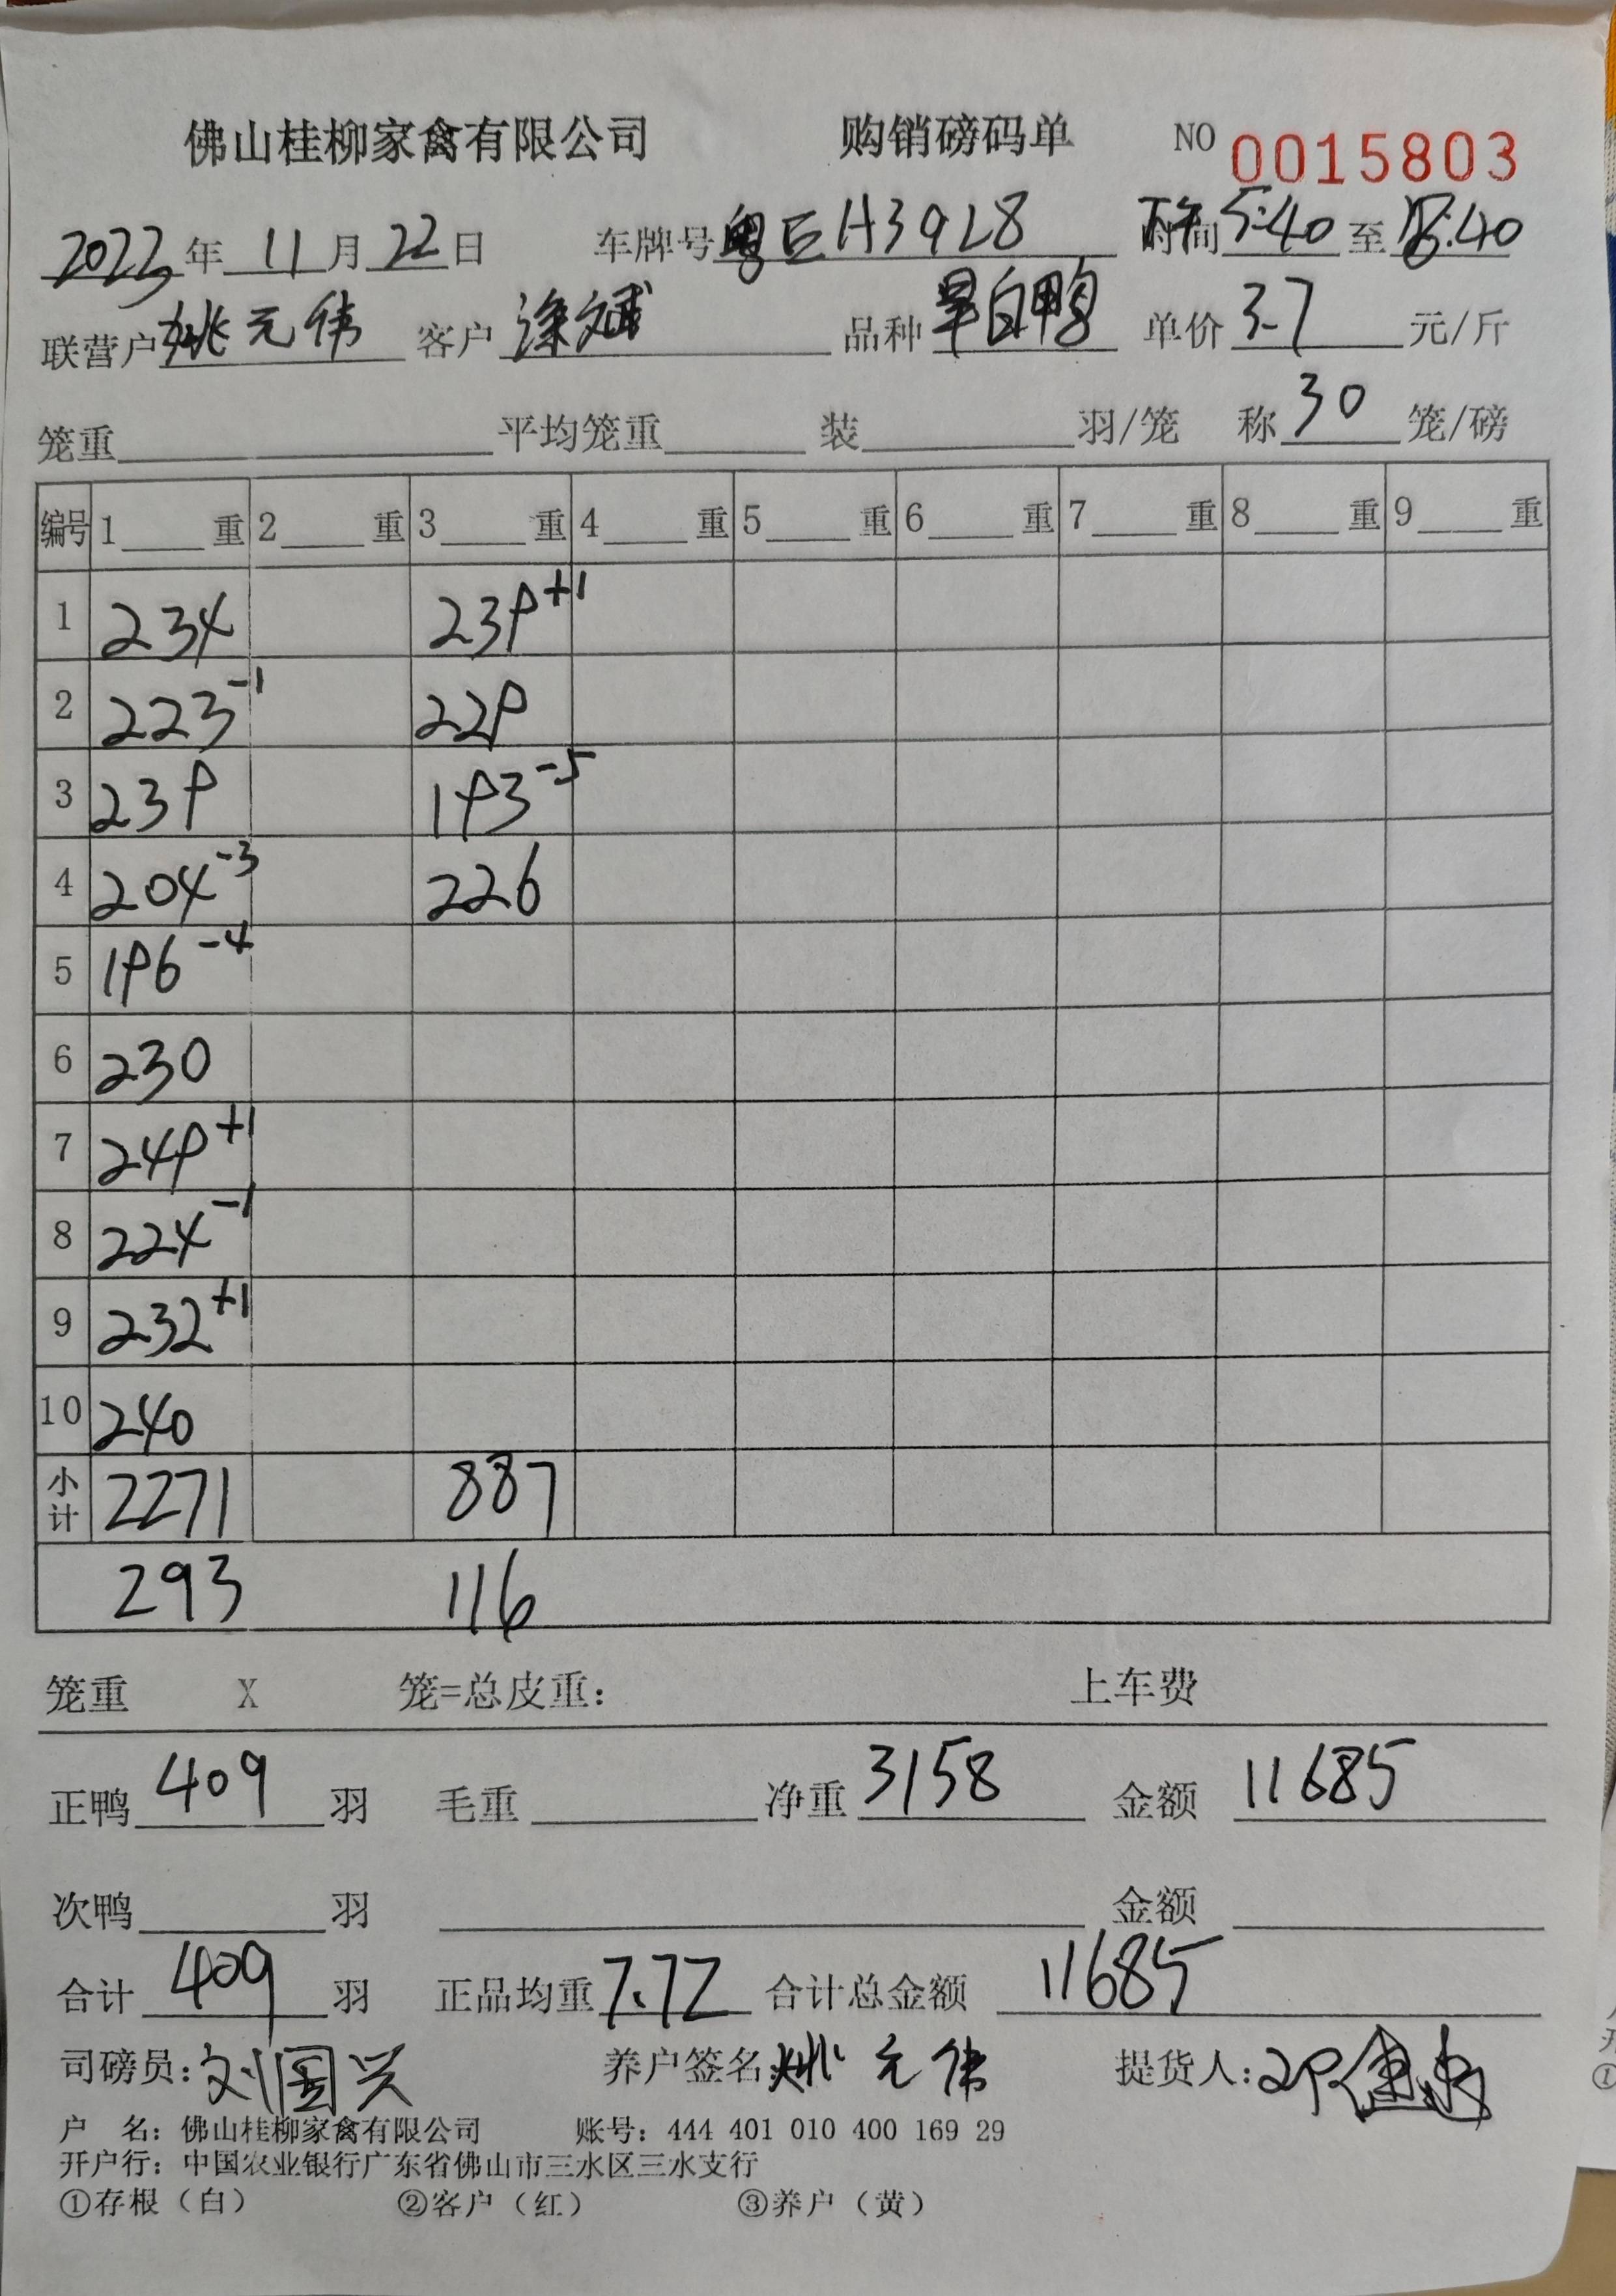 佛山桂柳家禽有限公司 购销磅码单 NO 0015803
2023年 11月22日 车牌号粤E H3928 时间 下午5:40 至
联营户姚元伟 客户涂斌 品种旱白鸭 单价3.7元/斤
笼重 平均笼重 装 羽/笼 称30笼/磅
编号 1 重 2 重 3 重 4 重 5 重 6 重 7 重 8 重 9 重
1 234 239+1
2 223-1 229
3 239 193-5
4 204-3 226
5 196-4
6 230
7 249+1
8 224-1
9 232+1
10 240
小计 2271 887
293 116
笼重 X 笼=总皮重: 上车费
正鸭409羽 毛重 净重3158 金额11685
次鸭 羽 金额
合计409羽 正品均重7.72 合计总金额11685
司磅员:刘国兴 养户签名姚元伟 提货人:
户 名: 佛山桂柳家禽有限公司 账号: 444 401 010 400 169 29
开户行: 中国农业银行广东省佛山市三水区三水支行
①存根(白) ②客户(红) ③养户(黄)